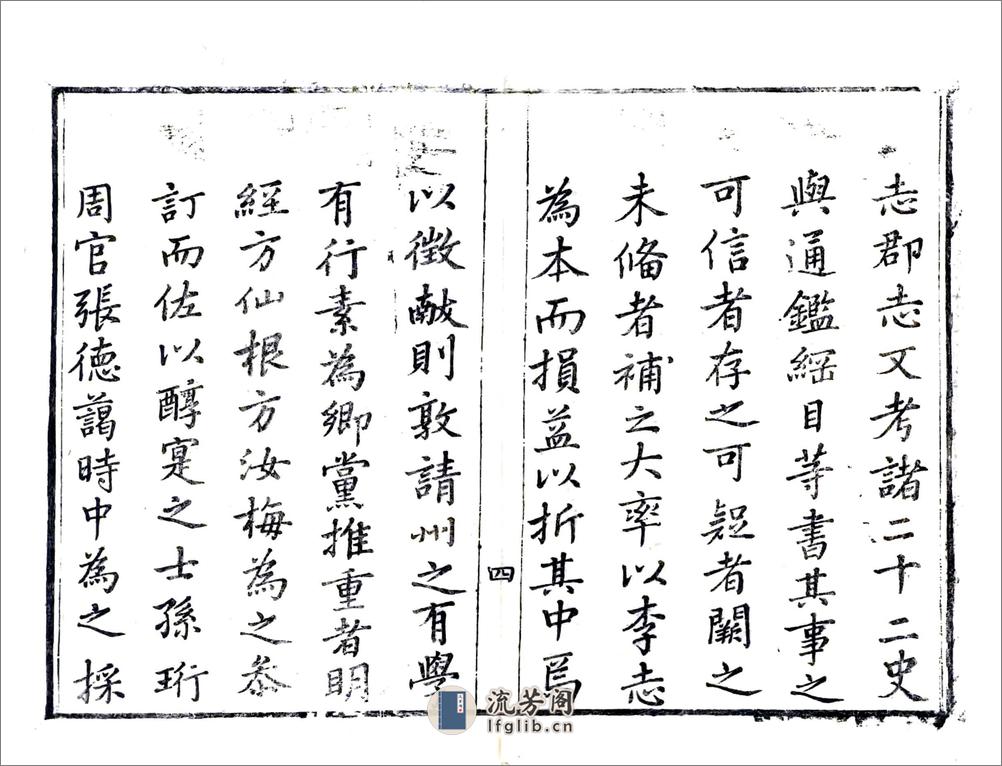 志郡志又考諸二十二史
與通鑑綱目等書其事之
可信者存之可疑者闕之
未俻者補之大率以李志
為本而損益以折其中焉
四
以徵献則敦請州之有學
有行素為鄉黨推重者明
經方仙根方汝梅為之叅
訂而佐以醇寔之士孫珩
周官張德藹時中為之採
流芳阁
lfglib.cn